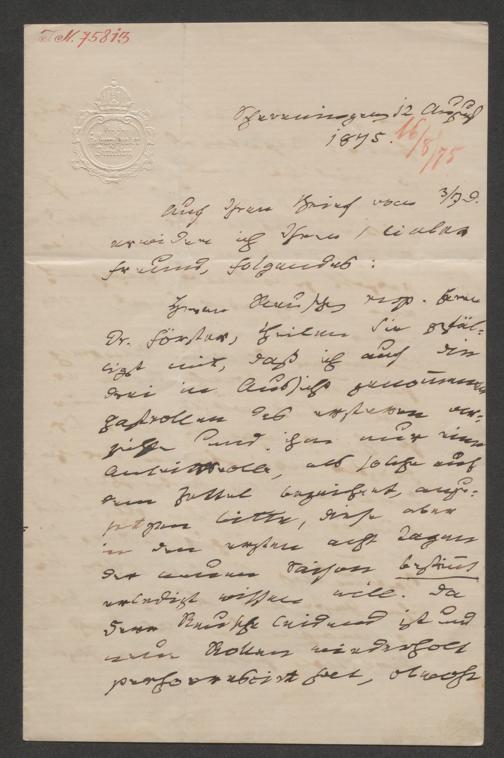 I.N. 75813
Scheveningen 12 August
1875.
16/8/75
Auf Ihren Brief vom 3/7 d.
erwidere ich Ihnen, lieber
Freund, folgendes:
Herrn resp. Herrn
Dr. Förster, theilen Sie gefäl-
ligst mit, daß ich auf die
drei in Aussicht genommenen
Gastrollen des ersteren ver-
zichte und ihn nur eine
Antrittsrolle, als solche auf
dem Zettel bezeichnet, anzu-
setzen bitte, diese aber
in den ersten acht Tagen
der neuen Saison bestimmt
erledigt wissen will. Da
leidend ist und
neue Rollen wiederholt
perhorrescirt hat, obwohl